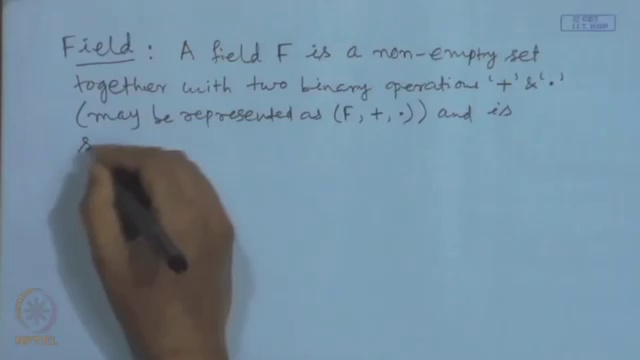 Field : A field F is a non-empty set
together with two binary operations '+' & '·'
(may be represented as (F, +, ·)) and is
s